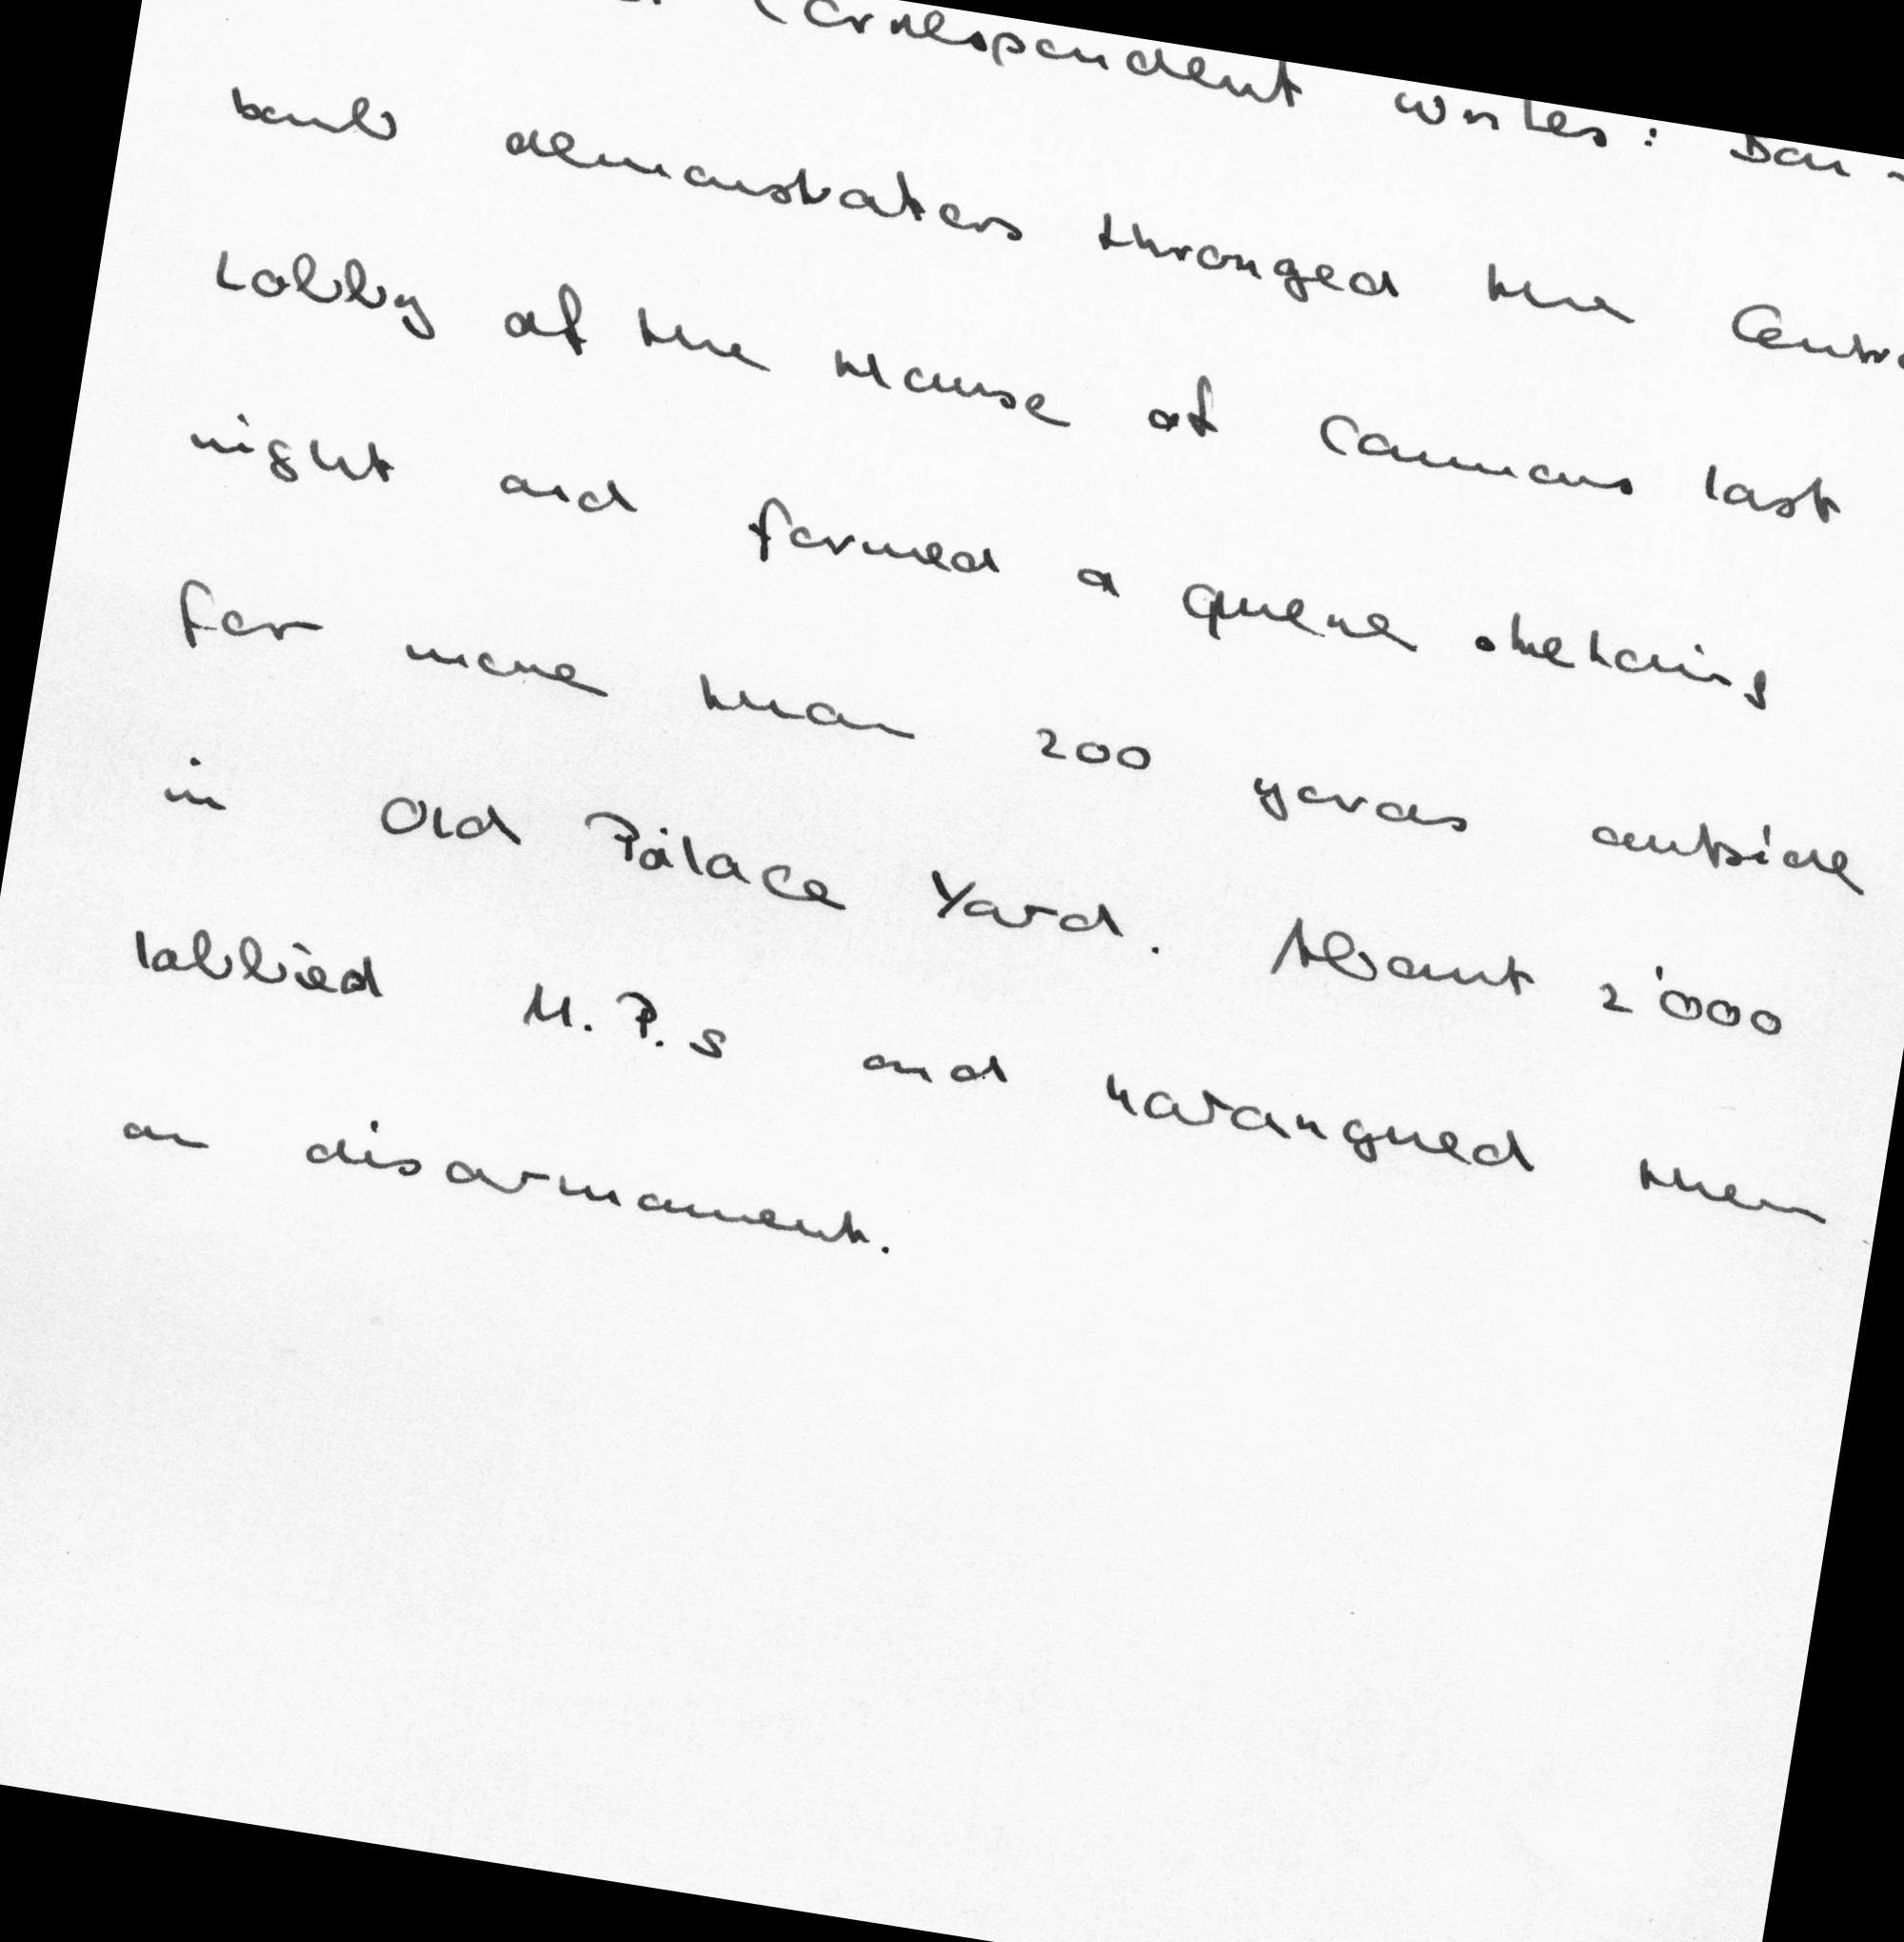 Correspondent writes: Ban-
bomb demonstrators thronged the Central
Lobby of the House of Commons last
night and formed a queue stretching
for more than 200 yards outside
in Old Palace Yard. About 2'000
lobbied M.P.s and harangued them
on disarmament.